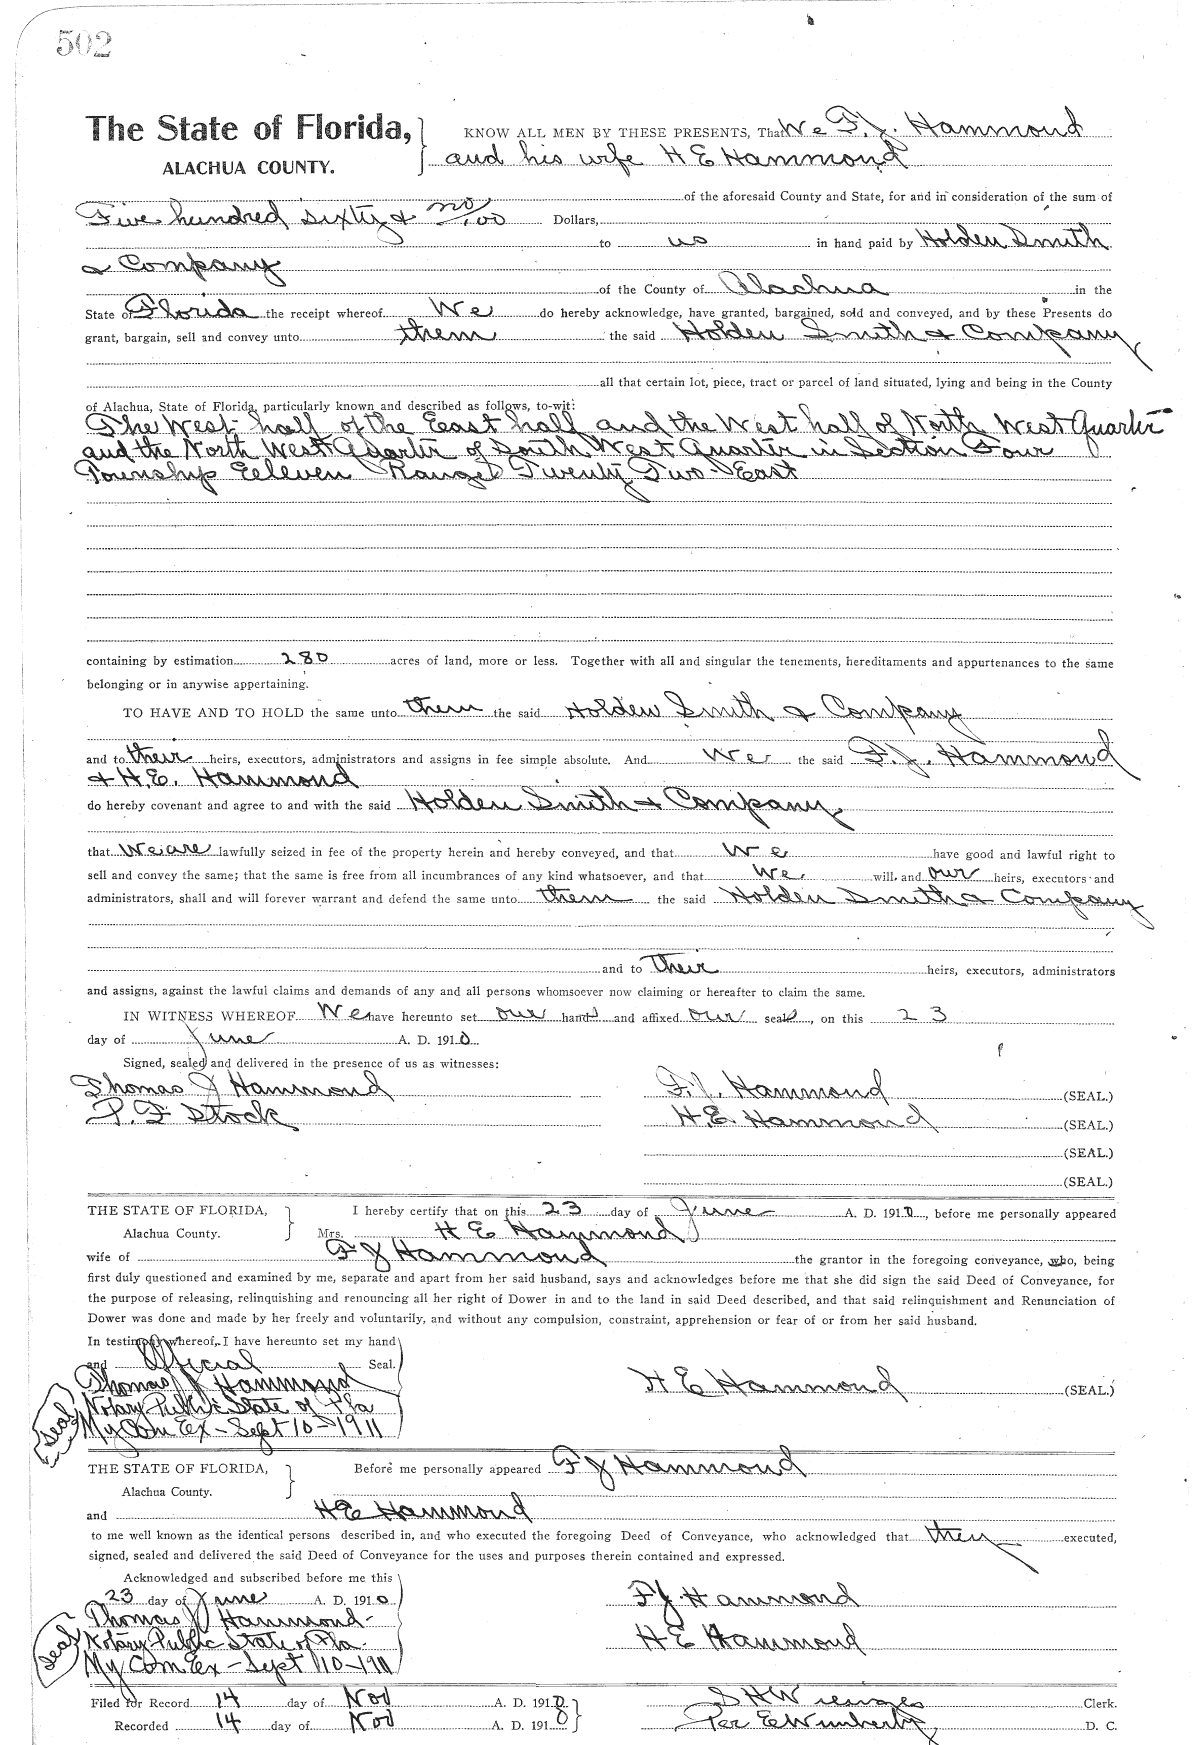 502
The State of Florida, KNOW ALL MEN BY THESE PRESENTS, That We F. J. Hammond
ALACHUA COUNTY. and his wife H E Hammond
of the aforesaid County and State, for and in consideration of the sum of
Five hundred sixty & no/100 Dollars,
to us in hand paid by Holden Smith
& Company
of the County of Alachua in the
State of Florida the receipt whereof We do hereby acknowledge, have granted, bargained, sold and conveyed, and by these Presents do
grant, bargain, sell and convey unto them the said Holden Smith & Company
all that certain lot, piece, tract or parcel of land situated, lying and being in the County
of Alachua, State of Florida, particularly known and described as follows, to-wit:
The West half of the East half and the West half of North West Quarter
and the North West Quarter of South West Quarter in Section Four
Township Eeleven Range Twenty Two East
containing by estimation 280 acres of land, more or less. Together with all and singular the tenements, hereditaments and appurtenances to the same
belonging or in anywise appertaining.
TO HAVE AND TO HOLD the same unto them the said Holden Smith & Company
and to their heirs, executors, administrators and assigns in fee simple absolute. And We the said F. J. Hammond
& H. E. Hammond
do hereby covenant and agree to and with the said Holden Smith & Company
that We are lawfully seized in fee of the property herein and hereby conveyed, and that We have good and lawful right to
sell and convey the same; that the same is free from all incumbrances of any kind whatsoever, and that We will and our heirs, executors and
administrators, shall and will forever warrant and defend the same unto them the said Holden Smith & Company
and to their heirs, executors, administrators
and assigns, against the lawful claims and demands of any and all persons whomsoever now claiming or hereafter to claim the same.
IN WITNESS WHEREOF We have hereunto set our hands and affixed our seals, on this 23
day of June A. D. 1910
Signed, sealed and delivered in the presence of us as witnesses:
Thomas J Hammond F. J. Hammond (SEAL.)
P. F Stock H. E. Hammond (SEAL.)
(SEAL.)
(SEAL.)
THE STATE OF FLORIDA, I hereby certify that on this 23 day of June A. D. 1910, before me personally appeared
Alachua County. Mrs. H E Hammond
wife of F J Hammond the grantor in the foregoing conveyance, who, being
first duly questioned and examined by me, separate and apart from her said husband, says and acknowledges before me that she did sign the said Deed of Conveyance, for
the purpose of releasing, relinquishing and renouncing all her right of Dower in and to the land in said Deed described, and that said relinquishment and Renunciation of
Dower was done and made by her freely and voluntarily, and without any compulsion, constraint, apprehension or fear of or from her said husband.
In testimony whereof, I have hereunto set my hand
and Official Seal.
Thomas J Hammond H E Hammond (SEAL.)
Notary Public State of Fla
Seal My Com Ex - Sept 10-1911
THE STATE OF FLORIDA, Before me personally appeared F J Hammond
Alachua County.
and H E Hammond
to me well known as the identical persons described in, and who executed the foregoing Deed of Conveyance, who acknowledged that they executed,
signed, sealed and delivered the said Deed of Conveyance for the uses and purposes therein contained and expressed.
Acknowledged and subscribed before me this
23 day of June A. D. 1910 F J Hammond
Thomas J Hammond
Seal Notary Public State of Fla. H E Hammond
My Com Ex - Sept 10-1911
Filed for Record 14 day of Nov A. D. 1910 S H Wienges Clerk.
Recorded 14 day of Nov A. D. 1910 Per E Wimberly D. C.